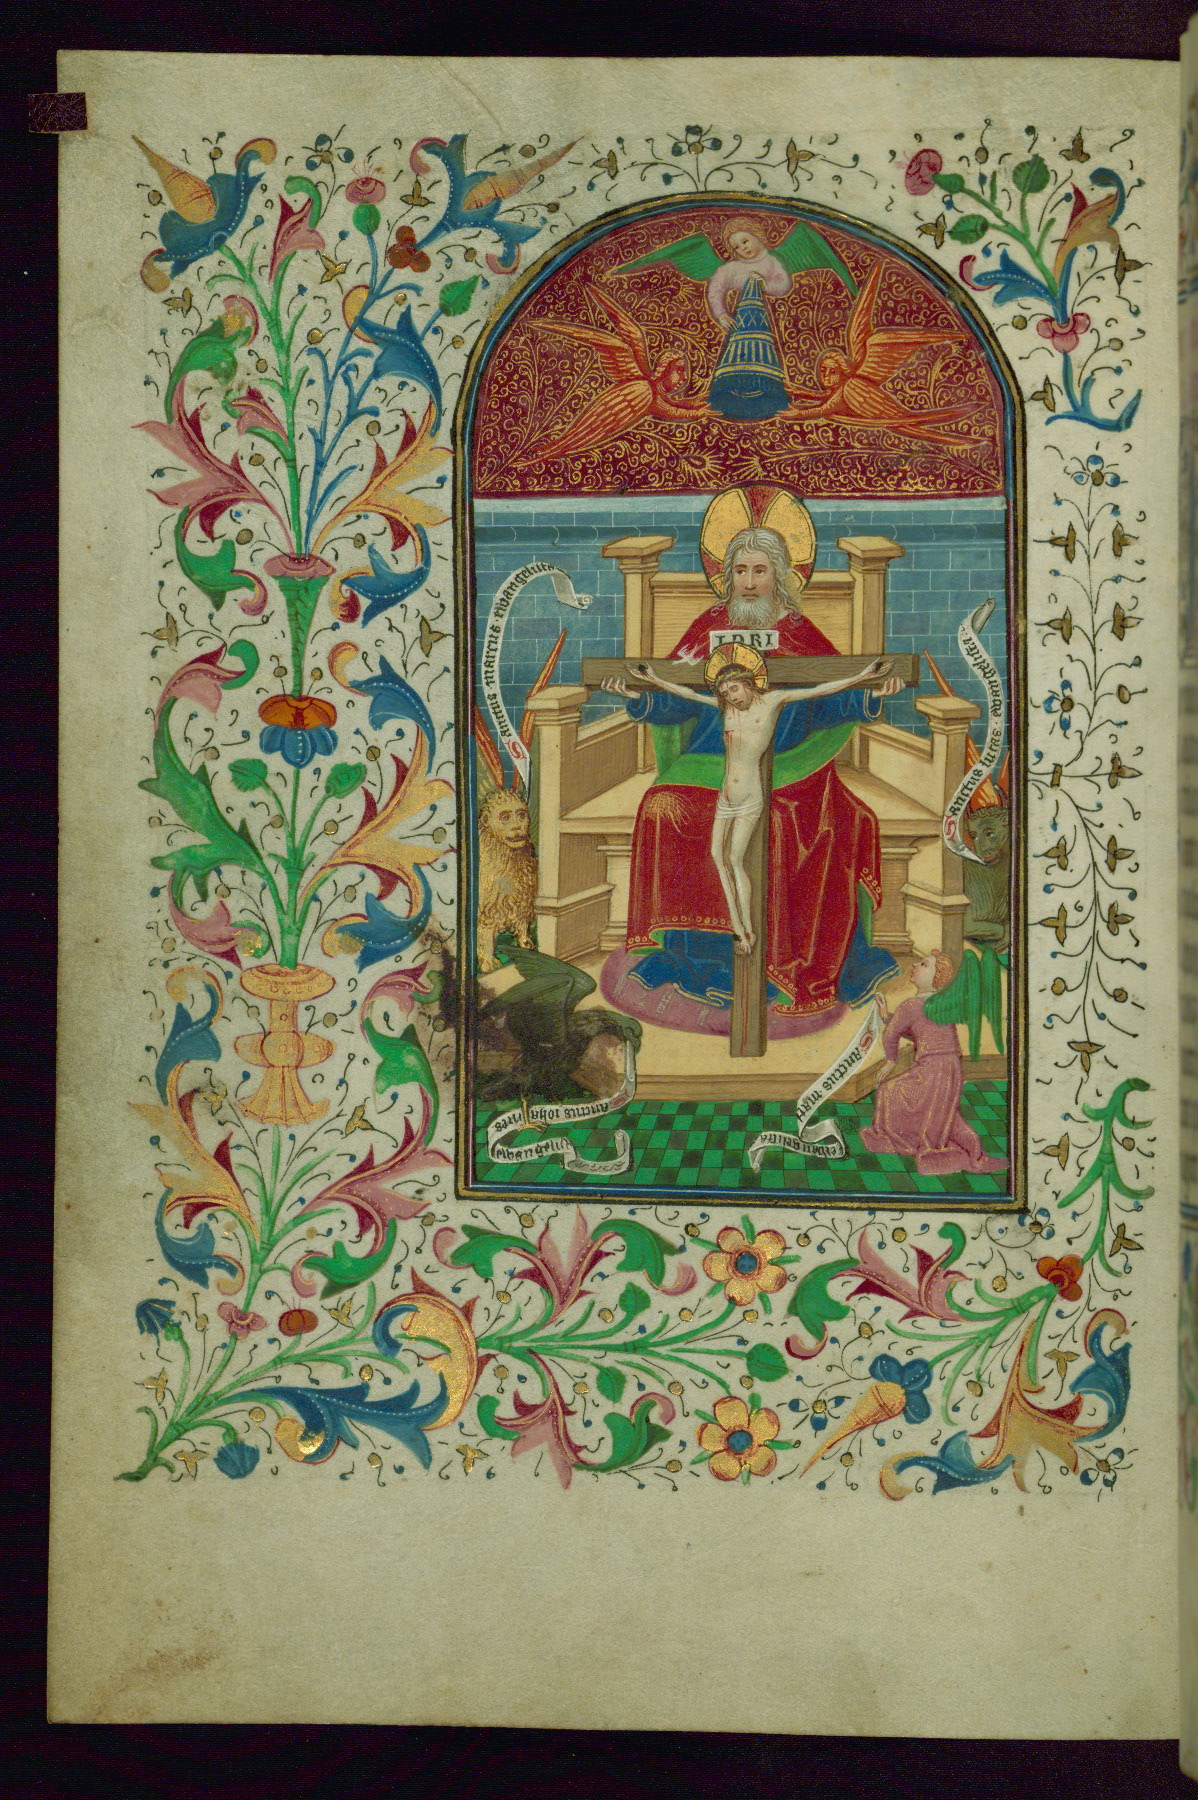 INRI
Sanctus marcus · evangelista
Sanctus lucas · evangelista
Sanctus johannes
evangelista
Sanctus matt
evangelista